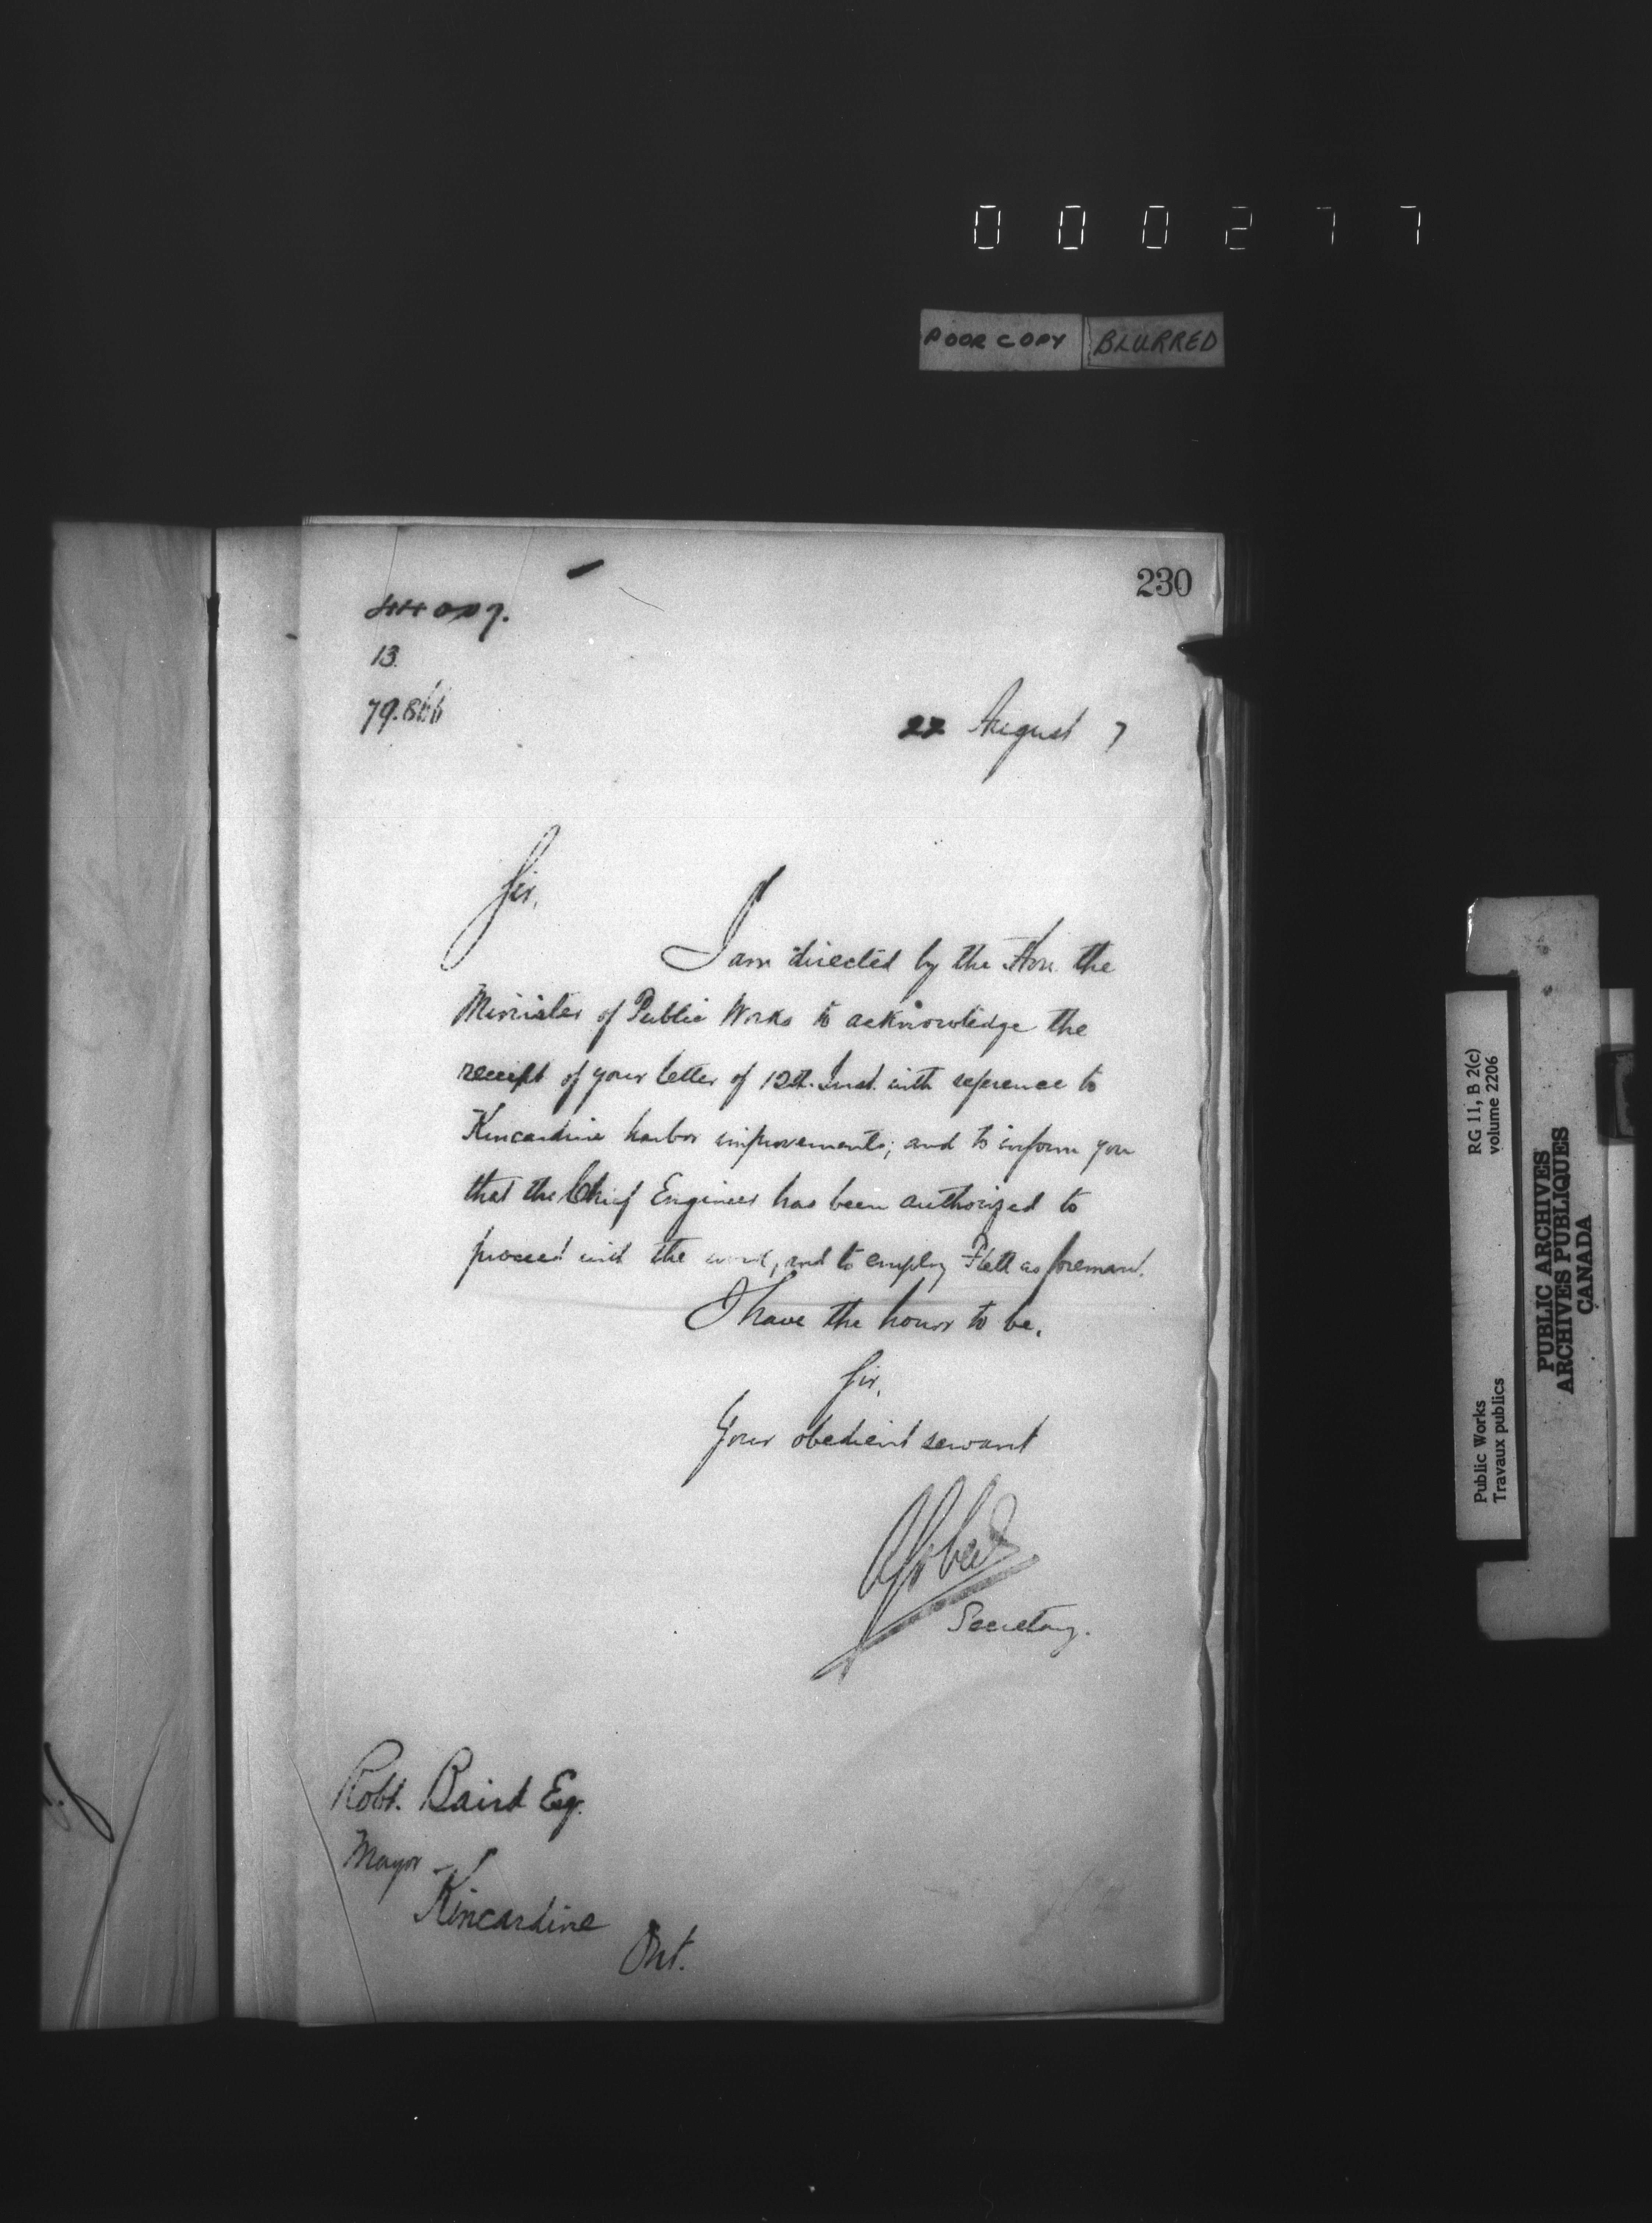 000277
POOR COPY BLURRED
230
13.
79.866
22 August 7
Sir,
I am directed by the Hon. the
Minister of Public Works to acknowledge the
receipt of your letter of 12th. Inst. with reference to
Kincardine harbor improvements; and to inform you
that the Chief Engineer has been authorized to
proceed with the work, and to employ as foreman.
I have the honor to be,
Sir,
Your obedient servant
Secretary.
Robt. Baird Esq.
Mayor
Kincardine
Ont.
RG 11, B 2(c)
volume 2206
Public Works
Travaux publics
PUBLIC ARCHIVES
ARCHIVES PUBLIQUES
CANADA